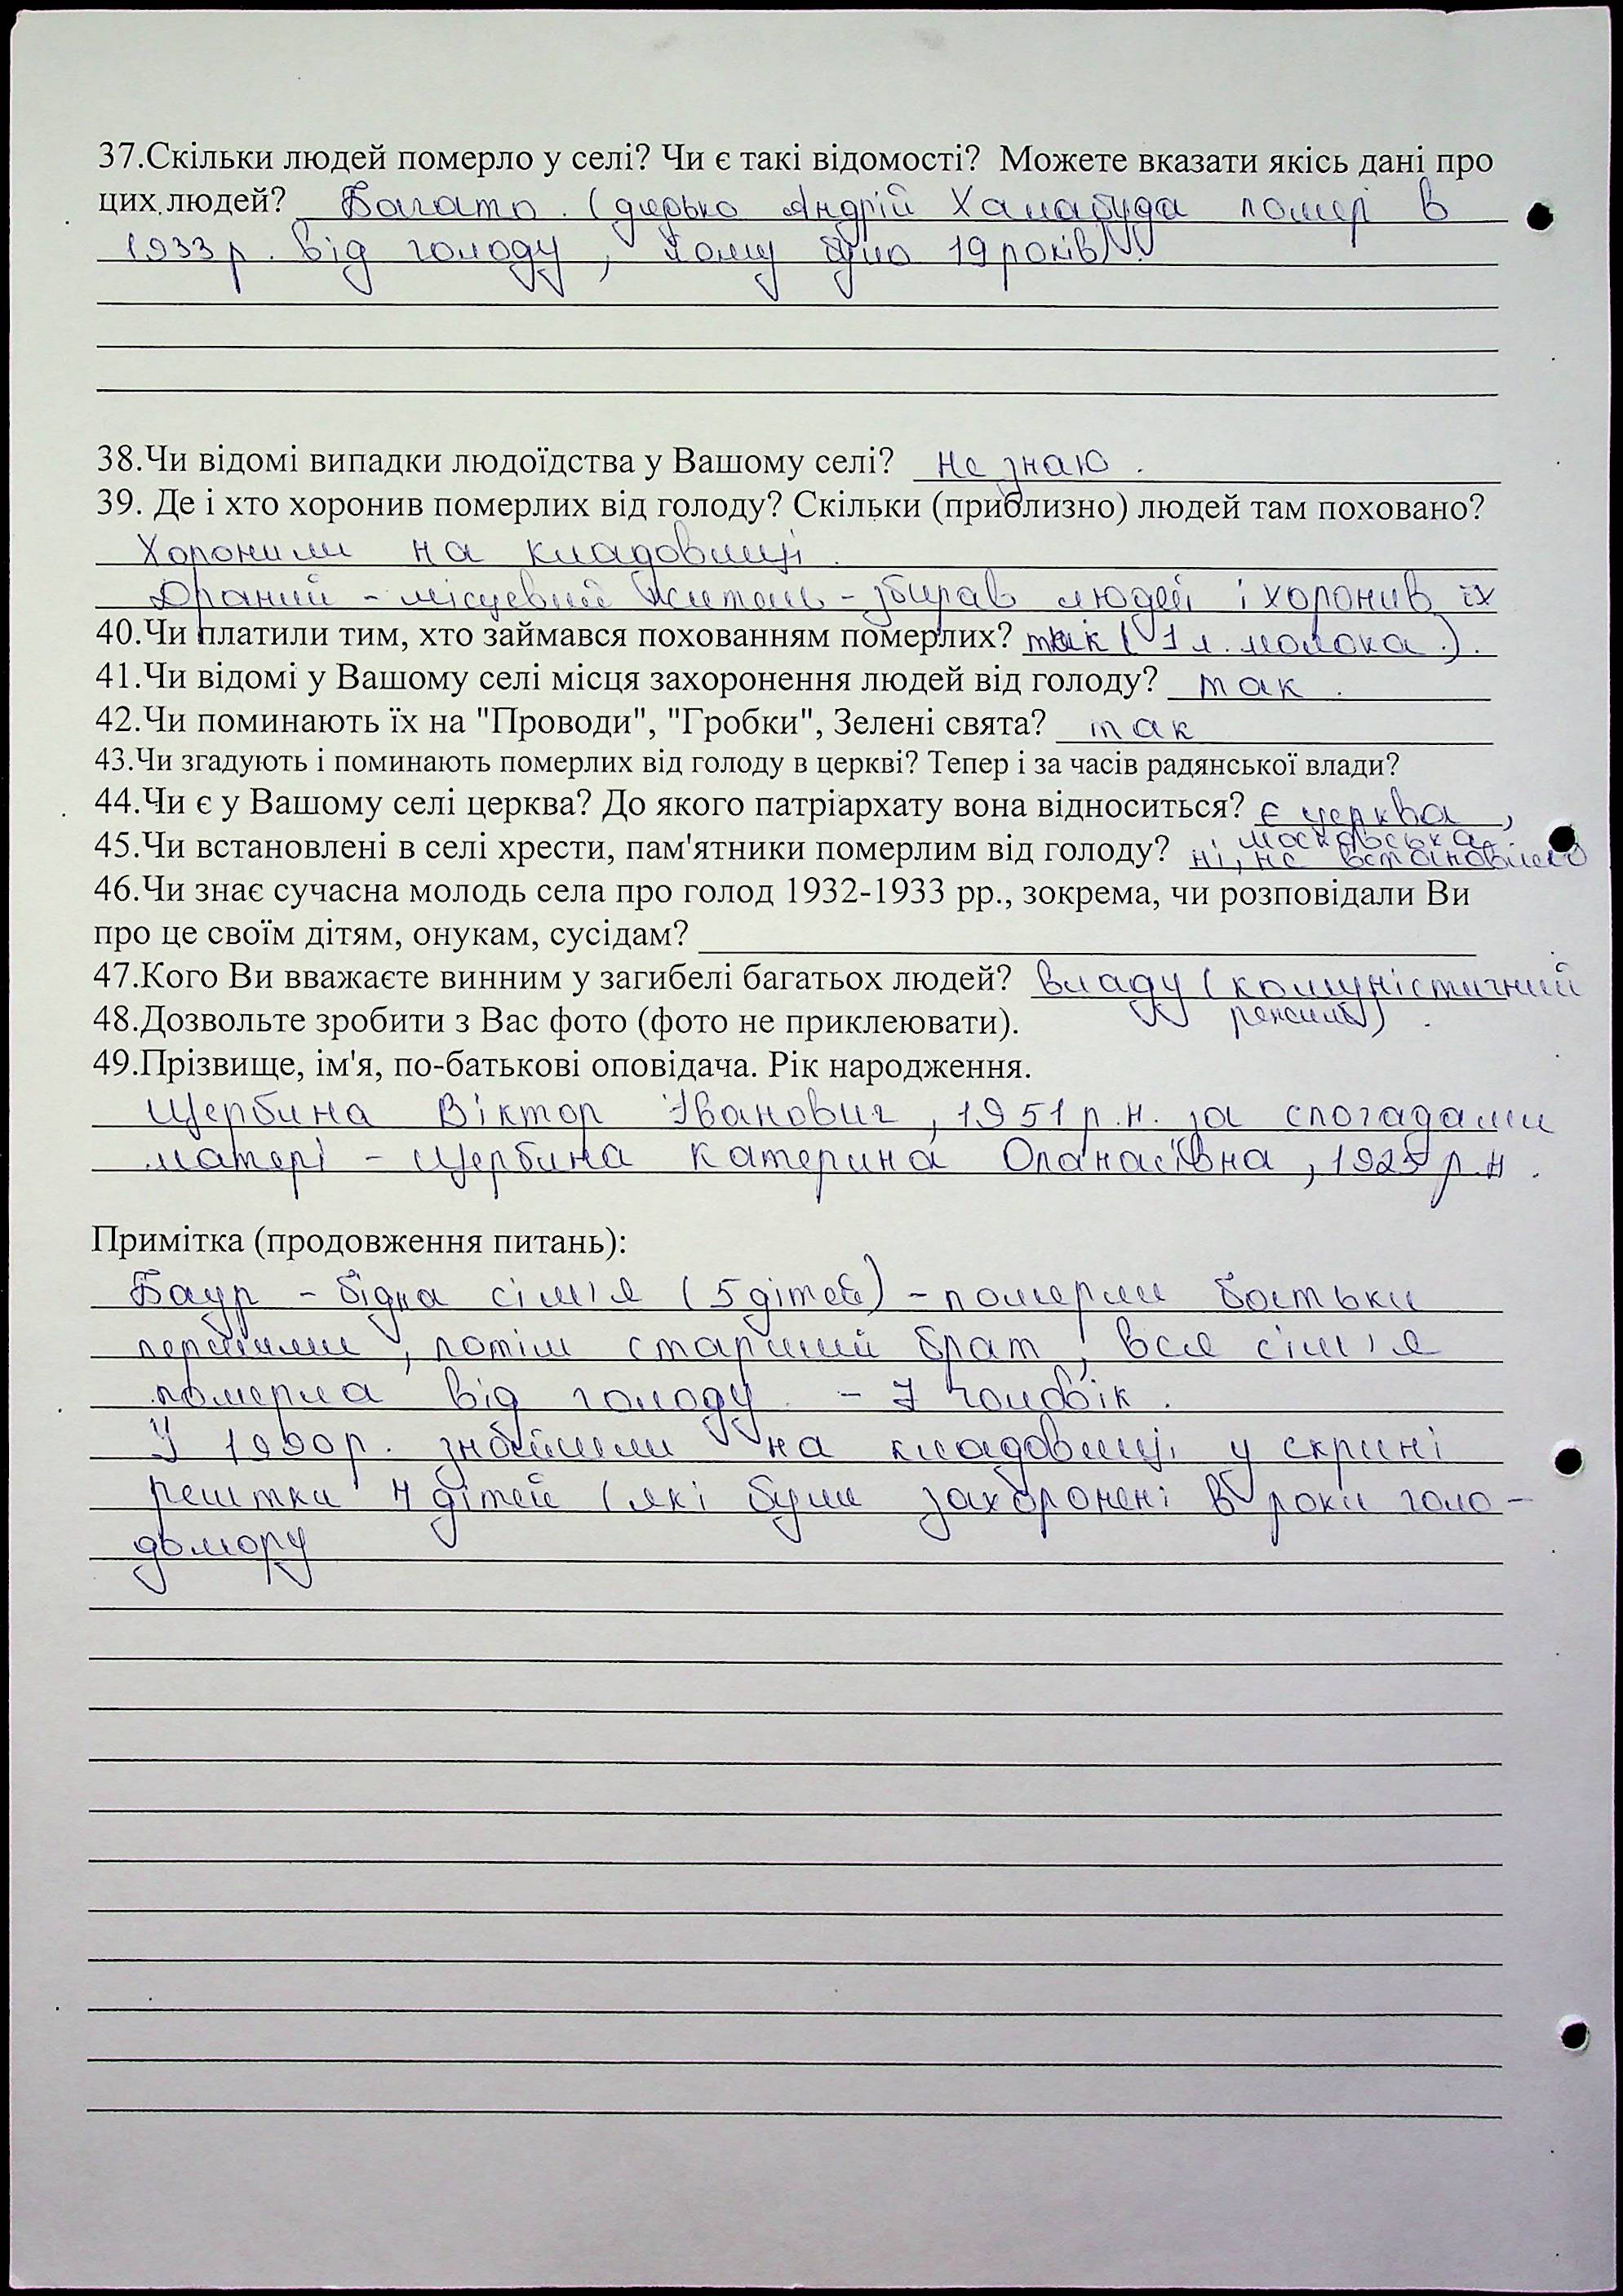 37.Скільки людей померло у селі? Чи є такі відомості? Можете вказати якісь дані про
цих людей? Багато. (дядько Андрій Халабуда помер в
1933 р. від голоду, йому було 19 років).
38.Чи відомі випадки людоїдства у Вашому селі? Не знаю.
39. Де і хто хоронив померлих від голоду? Скільки (приблизно) людей там поховано?
Хоронили на кладовищі.
Драний - місцевий житель - збирав людей і хоронив їх
40.Чи платили тим, хто займався похованням померлих? так (1 л. молока.).
41.Чи відомі у Вашому селі місця захоронення людей від голоду? так.
42.Чи поминають їх на "Проводи", "Гробки", Зелені свята? так
43.Чи згадують і поминають померлих від голоду в церкві? Тепер і за часів радянської влади?
44.Чи є у Вашому селі церква? До якого патріархату вона відноситься? є церква,
московська
45.Чи встановлені в селі хрести, пам'ятники померлим від голоду? ні, не встановлено
46.Чи знає сучасна молодь села про голод 1932-1933 рр., зокрема, чи розповідали Ви
про це своїм дітям, онукам, сусідам?
47.Кого Ви вважаєте винним у загибелі багатьох людей? владу (комуністичний
режим).
48.Дозвольте зробити з Вас фото (фото не приклеювати).
49.Прізвище, ім'я, по-батькові оповідача. Рік народження.
Щербина Віктор Іванович, 1951 р.н. за спогадами
матері - Щербина Катерина Опанасівна, 1925 р.н.
Примітка (продовження питань):
Баур - бідна сім'я (5 дітей) - померли батьки
першими, потім старший брат, вся сім'я
померла від голоду - 7 чоловік.
У 1990 р. знайшли на кладовищі у скрині
рештки 4 дітей (які були захоронені в роки голо-
домору